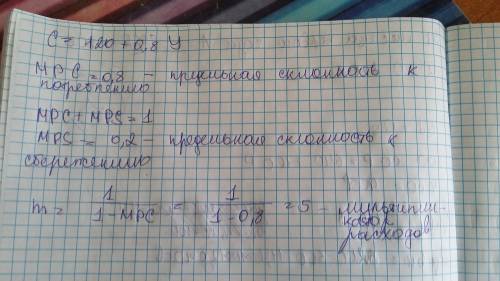 C = 120 + 0,8 У
MPC = 0,8 - предельная склонность к
потреблению
MPC + MPS = 1
MPS = 0,2 - предельная склонность к
сбережению
m = 1 / 1 - MPC = 1 / 1 - 0,8 = 5 - мультипли-
катор
расходов